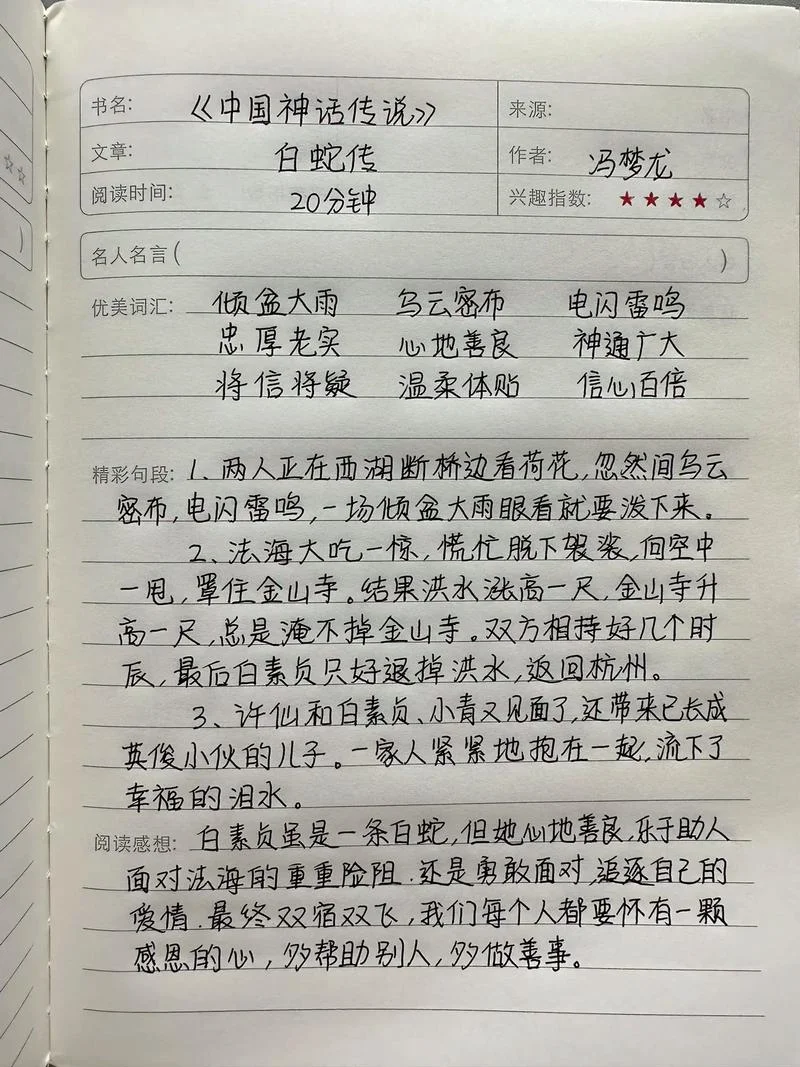 书名: 《中国神话传说》 来源:
文章: 白蛇传 作者: 冯梦龙
阅读时间: 20分钟 兴趣指数: ★★★★☆
名人名言( )
优美词汇: 倾盆大雨 乌云密布 电闪雷鸣
忠厚老实 心地善良 神通广大
将信将疑 温柔体贴 信心百倍
精彩句段: 1、两人正在西湖断桥边看荷花,忽然间乌云
密布,电闪雷鸣,一场倾盆大雨眼看就要泼下来。
2、法海大吃一惊,慌忙脱下袈裟,向空中
一甩,罩住金山寺。结果洪水涨高一尺,金山寺升
高一尺,总是淹不掉金山寺。双方相持好几个时
辰,最后白素贞只好退掉洪水,返回杭州。
3、许仙和白素贞、小青又见面了,还带来已长成
英俊小伙的儿子。一家人紧紧地抱在一起,流下了
幸福的泪水。
阅读感想: 白素贞虽是一条白蛇,但她心地善良,乐于助人
面对法海的重重险阻.还是勇敢面对,追逐自己的
爱情.最终双宿双飞,我们每个人都要怀有一颗
感恩的心,多帮助别人,多做善事。